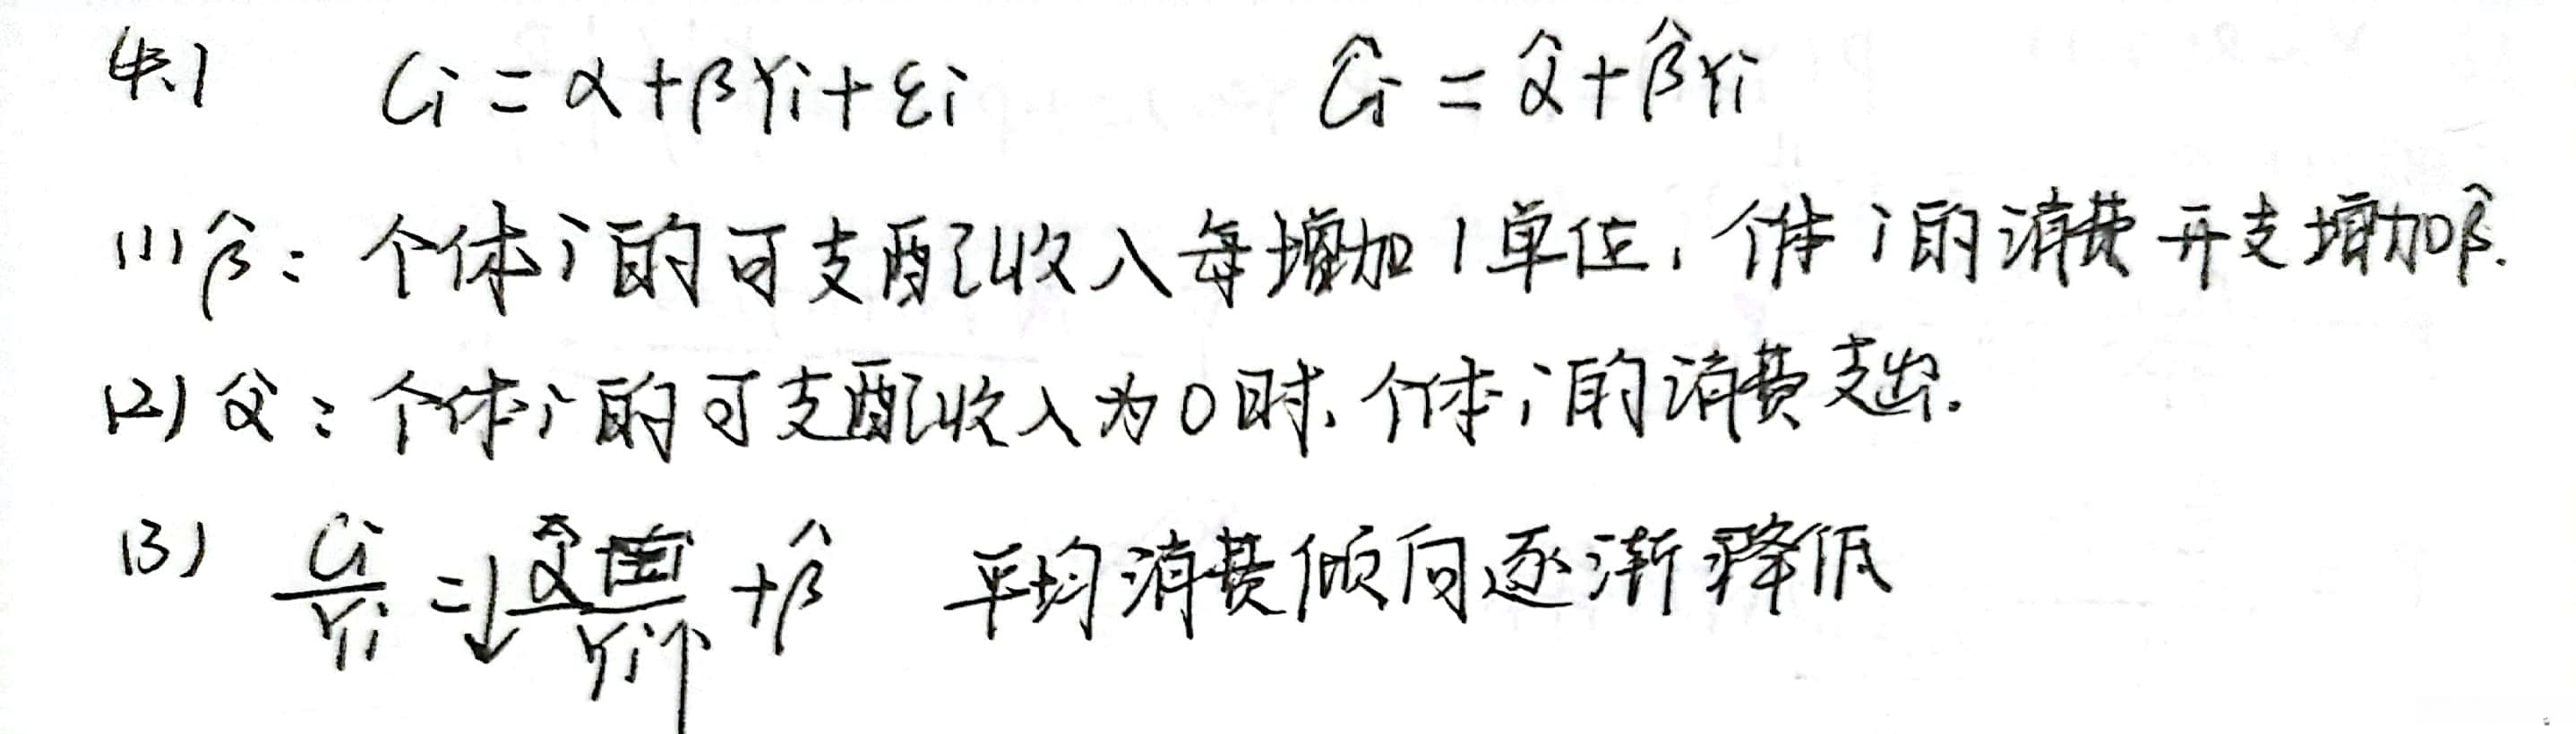 4.1 Ci = α + βYi + εi Ĉi = α̂ + β̂Yi
(1) β̂: 个体i的可支配收入每增加1单位, 个体i的消费开支增加β̂.
(2) α̂: 个体i的可支配收入为0时, 个体i的消费支出.
(3) Ci/Yi = ↓ α̂/Yi↑ + β̂ 平均消费倾向逐渐降低